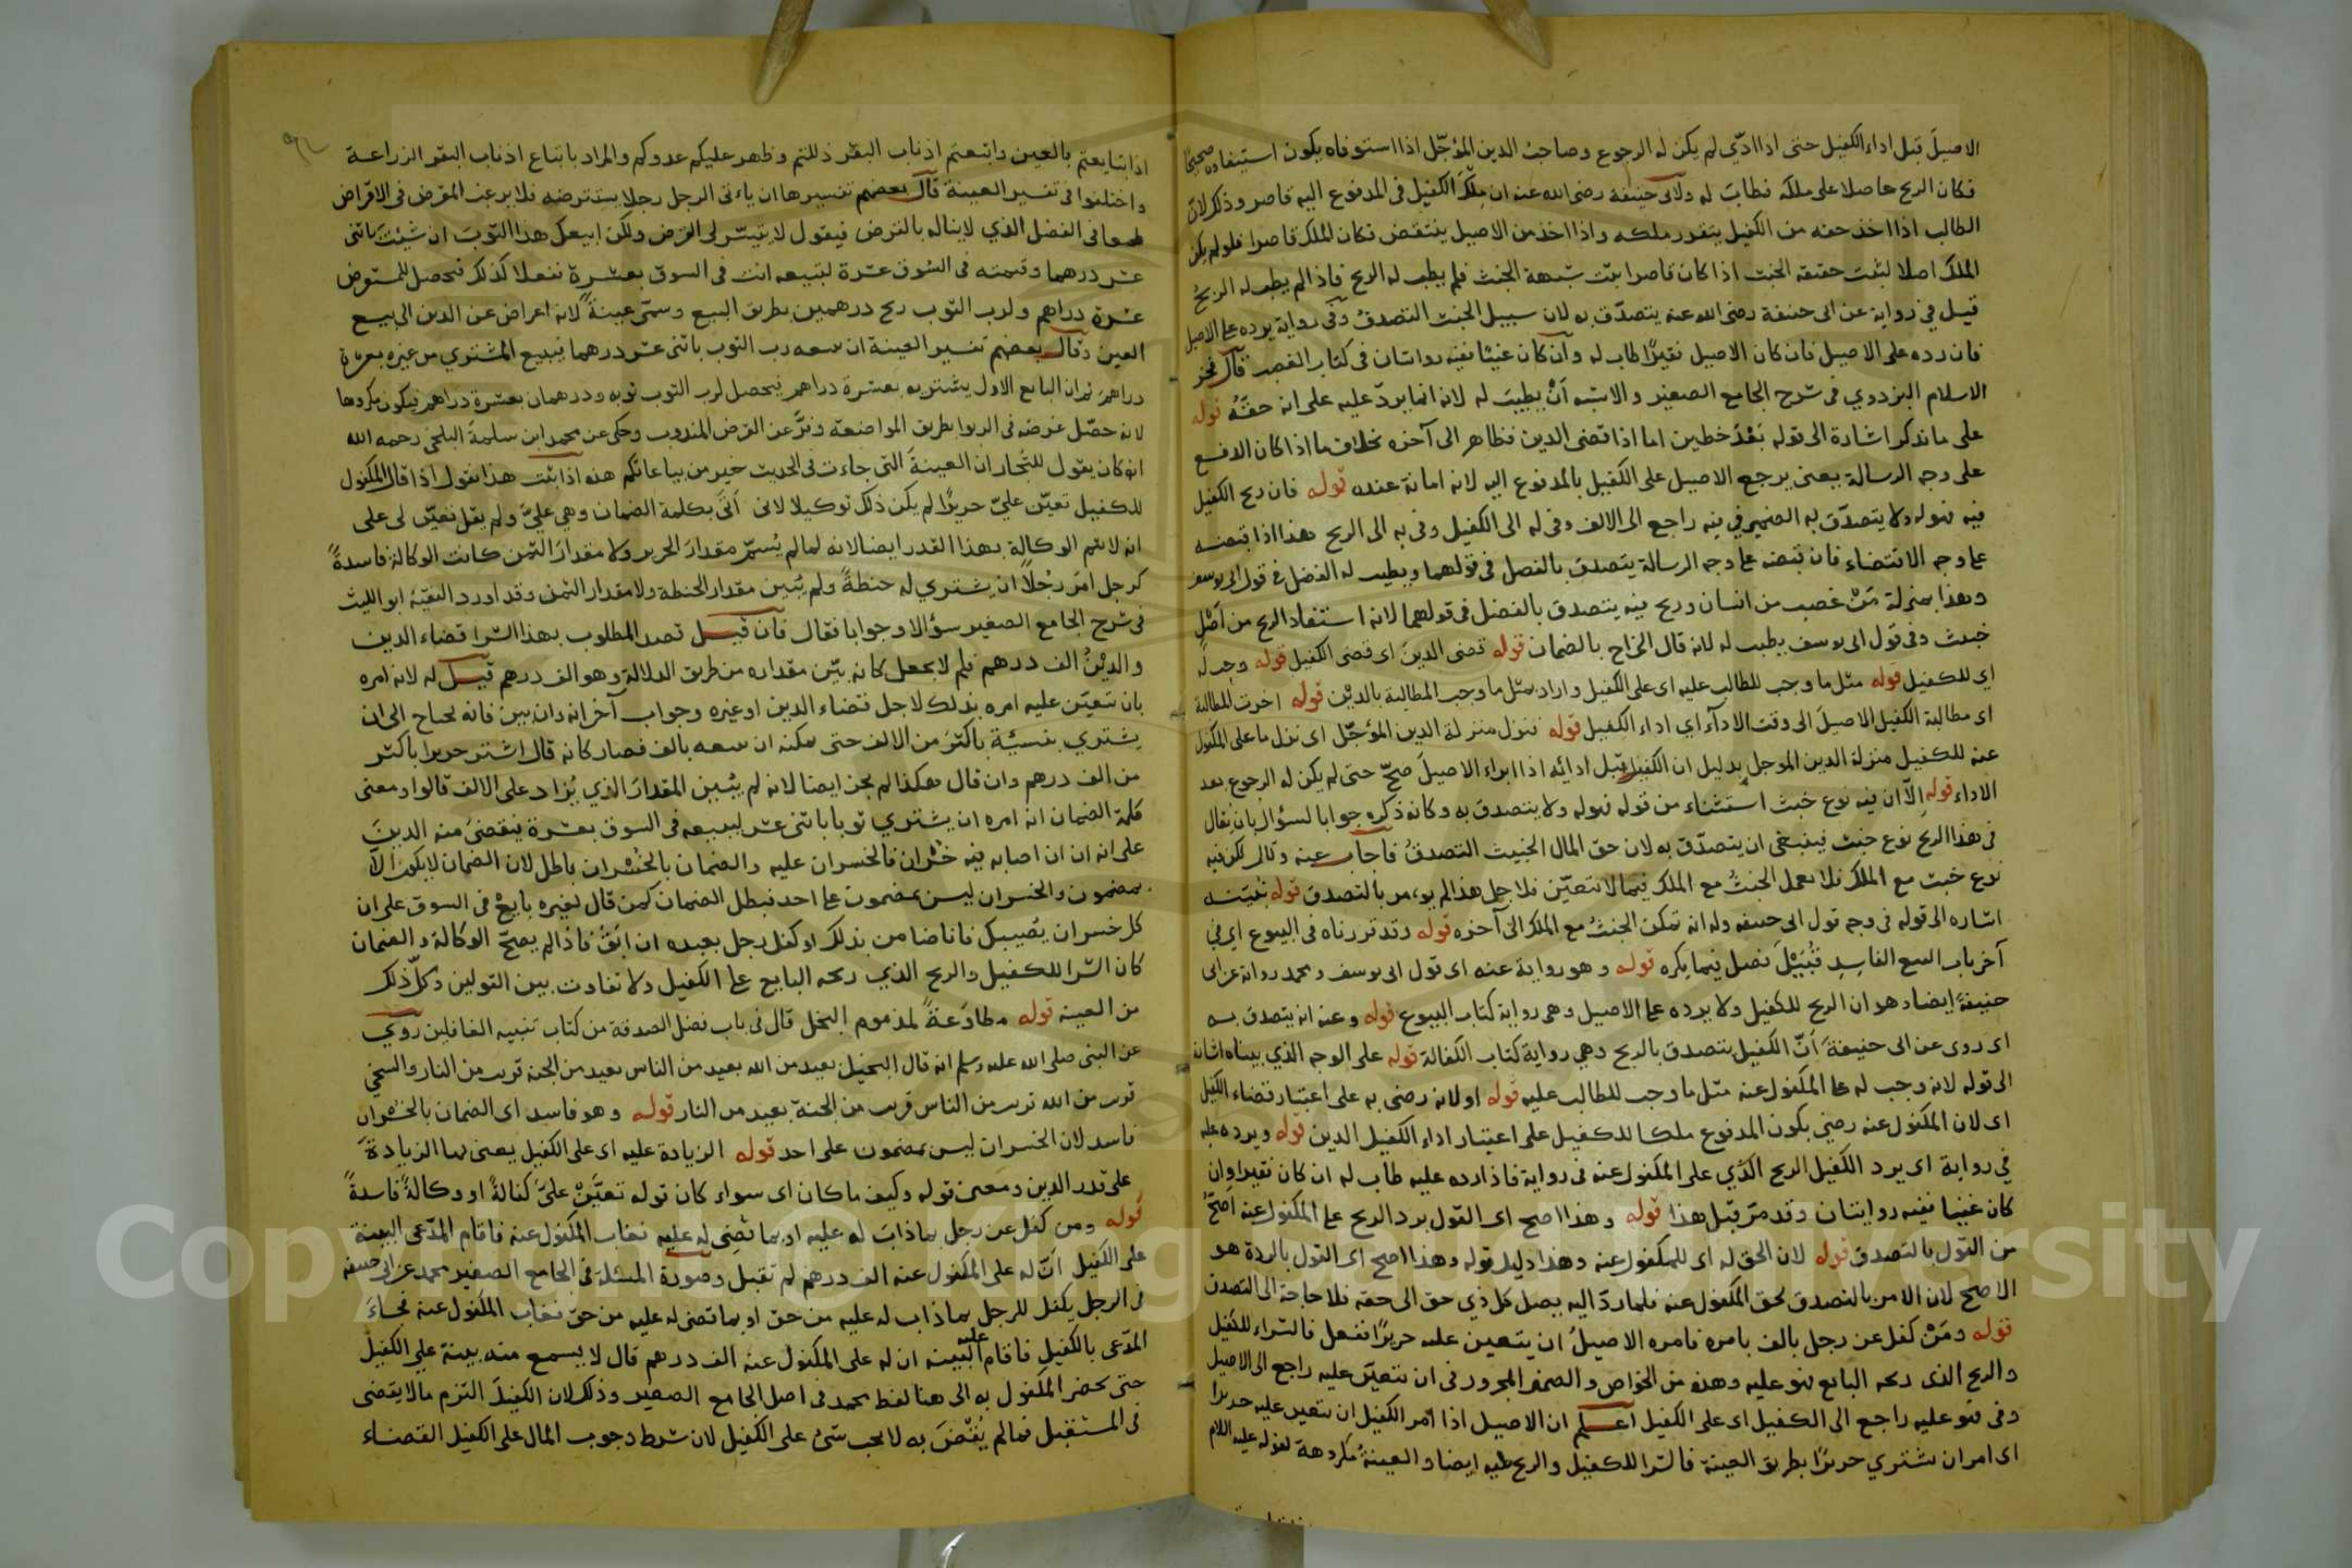 الاصيلَ قبل اداء الكفيل حتى اذا ادّى لم يكن له الرجوع وصاحب الدين المؤجّل اذا استوفاه يكون استيفاء صحيحًا
فكان الربح حاصلا على ملكه فطاب له ولابى حنيفة رضى الله عنه ان مِلْكَ الكفيل فى المدفوع اليه قاصر وذلك لان
الطالب اذا اخذ حقه من الكفيل يتقرر ملكه واذا اخذ من الاصيل ينتقض فكان الملك قاصرا فلو لم يكن
الملك اصلا لثبت حقيقة الخبث اذا كان قاصرا يثبت شبهة الخبث فلم يطب له الربح فاذا لم يطب له الربحُ
قيل في رواية عن ابى حنيفة رضى الله عنه يتصدّق به لان سبيل الخبث التصدق وفى رواية يرده على الاصيل
فان رده على الاصيل فان كان الاصيل فقيرًا طاب له وان كان غنيًا ففيه روايتان فى كتاب الغصب قال فخر
الاسلام البزدوي فى شرح الجامع الصغير والاشبه اَنْ يطيب له لانه انما يردّ عليه على انه حقّهُ قوله
على ما نذكر اشارة الى قوله بَعْدَ خطين اما اذا قضى الدين فظاهر الى آخره بخلاف ما اذا كان الدفع
على وجه الرسالة يعنى يرجع الاصيل على الكفيل بالمدفوع اليه لانه امانة عنده قوله فان ربح الكفيل
فيه فهو له ولا يتصدّق به الضمير في فيه راجع الى الالف وفى له الى الكفيل وفى به الى الربح هذا اذا قبضه
على وجه الاقتضاء فان قبضه على وجه الرسالة يتصدق بالفضل فى قولهما ويطيب له الفضل فى قول ابى يوسف
وهذا بمنزلة مَنْ غصب من انسان وربح فيه يتصدق بالفضل فى قولهما لانه استفاد الربح من اَصْلٍ
خبيث وفى قول ابى يوسف يطيب له لانه قال الخراج بالضمان قوله قضى الدينَ اى قضى الكفيل قوله وجب له
اي للكفيل قوله مثل ما وجب للطالب عليه اى على الكفيل واراد بمثل ما وجب المطالبة بالديْن قوله اخرت المطالبة
اى مطالبة الكفيل الاصيلَ الى وقت الادآء اي اداء الكفيل قوله فنزل منزلة الدين المؤجّل اى نزل ما على المكفول
عنه للكفيل منزلة الدين الموجل بدليل ان الكفيل قبل ادائه اذا ابراء الاصيلَ صحّ حتى لم يكن له الرجوع بعد
الاداء قوله اِلاّ ان فيه نوع خبث استثناء من قوله فهو له ولا يتصدق به وكانه ذكره جوابا لسؤال بان يقال
فى هذا الربح نوع خبث فينبغى ان يتصدّق به لان حق المال الخبيث التصدقُ فاجاب عنه وقال لكن فيه
نوع خبث مع الملك فلا يعمل الخبثُ مع الملك فيما لا يتعيّن فلاجل هذا لم يوءمر بالتصدق قوله نُبَيّنه
اشاره الى قوله فى وجه قول ابى حنيفه وله انه تمكن الخبثُ مع الملك الى آخره قوله وقد قررناه فى البيوع اي في
آخر باب البيع الفاسِدِ قُبَيْلَ فصل فيما يكره قوله وهو رواية عنه اى قول ابى يوسف ومحمد رواية عن ابى
حنيفةَ ايضا وهو ان الربح للكفيل ولا يرده على الاصيل وهى رواية كتاب البيوع قوله وعنه انه يتصدق به
اى روى عن ابى حنيفةَ اَنّ الكفيل يتصدق بالربح وهي رواية كتاب الكفالة قوله على الوجه الذي بيناه اشارة
الى قوله لانه وجب له على المكفول عنه مثل ما وجب للطالب عليه قوله او لانه رضى به على اعتبار قضاء الكفيل
اى لان المكفول عنه رضي بكون المدفوع ملكا للكفيل على اعتبار اداء الكفيل الدين قوله ويرده عليه
في رواية اى يرد الكفيل الربح الذي على المكفول عنه فى رواية فاذا رده عليه طاب له ان كان فقيرا وان
كان غنيا ففيه روايتان وقد مرّ قبْل هذا قوله وهذا اصح اى القول برد الربح على المكفول عنه اصحّ
من القول بالتصدق قوله لان الحق له اى للمكفول عنه وهذا دليل قوله وهذا اصح اى القول بالردّ هو
الاصح لان الامر بالتصدق لحق المكفول عنه فلما ردّ اليه يصل كل ذي حق الى حقه فلا حاجة الى التصدق
قوله ومَنْ كفل عن رجل بالف بامره فامره الاصيلُ ان يتعين عليه حريرًا ففعل فالشراء للكفيل
والربح الذى ربحه البايع فهو عليه وهذه من الخواص والضمير المجرور فى ان يتعيّن عليه راجع الى الاصيل
وفى فهو عليه راجع الى الكفيل اى على الكفيل اعلم ان الاصيل اذا امر الكفيل ان يتعين عليه حريرا
اى امر ان يشتري حريرًا بطريق العينة فالشرا للكفيل والربح عليه ايضا والعينةُ مكروهة لقوله عليه السلام
اذا تبايعتم بالعين واتبعتم اذناب البقر ذللتم وظهر عليكم عدوكم والمراد باتباع اذناب البقر الزراعة
واختلفوا فى تفسير العينة قال بعضهم تفسيرها ان ياءتى الرجل رجلا يستقرضه فلا يرغب المقرض فى الاقراض
طمعا فى الفضل الذي لا يناله بالقرض فيقول لا يتيسّر لى القرض ولكن ابيعك هذا الثوبَ ان شيئتَ باثنى
عشر درهما وقيمته فى السّوق عشرة لتبيعه انت فى السوق بعشرة ففعلا كذلك فيحصل للمستقرض
عشرة دراهم ولرب الثوب ربح درهمين بطريق البيع وسمّى عينةً لانه اعراض عن الدين الى بيع
العين وقال بعضهم تفسير العينة ان يبيعه رب الثوب باثنى عشر درهما فيبيع المشتري من غيره بعشرة
دراهم ثم ان البايع الاول يشتريه بعشرة دراهم فيحصل لرب الثوب ثوبه ودرهمان بعشرة دراهم فيكون مكروها
لانه حصّل غرضه فى الربوا بطريق المواضعة وفرّ عن القرض المندوب وحكى عن محمد ابن سلمةَ البلخى رحمه الله
انه كان يقول للتّجار ان العينةَ التي جاءت فى الحديث خير من بياعاتكم هذه اذا ثبت هذا نقول اذا قال المكفول
للكفيل تعيّن عليّ حريرًا لم يكن ذلك توكيلا لانى اَتَى بكلمة الضمان وهي عليَّ ولم يقل تعيّن لى على
انه لا يتم الوكالة بهذا القدر ايضا لانه لما لم يُسمّ مقدارَ الحرير ولا مقدارَ الثمن كانت الوكالة فاسدةً
كرجل امرَ رجُلاً ان يشتري له حنطةً ولم يُبين مقدار الحنطة ولا مقدار الثمن وقد اورد الفقيهُ ابو الليث
فى شرح الجامع الصغير سؤالا وجوابا فقال فان قيل قصد المطلوب بهذا الشرا قضاء الدين
والديْنُ الف درهم فلم لا يجعل كانه بيّن مقداره من طريق الدلالة وهو الف درهم قيل له لانه امره
بان يتعيّن عليه امره بذلك لاجل قضاء الدين او غيره وجواب آخر انه وان بين فانه يحتاج الى ان
يشترى بنسيئة باكثرَ من الالف حتى يمكنه ان يبيعه بالف فصار كانه قال اشتر حريرا باكثر
من الف درهم وان قال هكذا لم يجز ايضا لانه لم يُبين المقدارَ الذي يُزاد على الالف قالوا ومعنى
كلمة الضمان انه امره ان يشتري ثوبا باثنى عشر ليبيعه فى السوق بعشرة فيقضىَ منه الدينَ
على انه ان اصابه فيه خسْران فالخسران عليه والضمان بالخُسْران باطل لان الضمان لا يكون الّا
بمضمون والخسران ليس بمضمون على احد فبطل الضمان كمن قال لغيره بايعْ فى السوق على ان
كل خسران يُصيبك فانا ضامن بذلك او كفل رجل بعبده ان ابَقَ فاذا لم يصحّ الوكالة والضمان
كان الشرا للكفيل والربح الذي ربحه البايع على الكفيل ولا تفاوت بين القولين وكلّ ذلك
من العينه قوله مطاوَعةً لمذموم البخل قال فى باب فضل الصدقة من كتاب تنبيه الغافلين رُوي
عن النبى صلى الله عليه وسلم انه قال البخيل بعيد من الله بعيد من الناس بعيد من الجنة قريب من النار والسخى
قريب من الله قريب من الناس قريب من الجنة بعيد من النار قوله وهو فاسد اى الضمان بالخسْران
فاسد لان الخسران ليس بمضمون على احد قوله الزيادة عليه اى على الكفيل يعنى بها الزيادةَ
على قدر الدين ومعنى قوله وكيف ما كان اى سواء كان قوله تعيَّنْ علىَّ كفالةً او وكالةً فاسدةً
قوله ومن كفل عن رجل بما ذابَ له عليه او بما قُضِى له عليه فغاب المكفول عنه فاقام المدّعى البينة
على الكفيل اَنّ له على المكفول عنه الف درهم لم تقبل وصورة المسئلة فى الجامع الصغير محمد عن ابى حنيفه
فى الرجل يكفل للرجل بما ذاب له عليه من حق او بما قضى له عليه من حق فغاب المكفول عنه فجاءَ
المدّعى بالكفيل فاقام عليه البينه ان له على المكفول عنه الف درهم قال لا يسمع منه بينة على الكفيل
حتى يحضر المكفول به الى هنا لفظ محمد فى اصل الجامع الصغير وذلك لان الكفيلَ التزم مالا يقضى
فى المستقبل فما لم يُقْضَ به لا يجب شئ على الكفيل لان شرط وجوب المال على الكفيل القضاء
Copyright © King Saud University